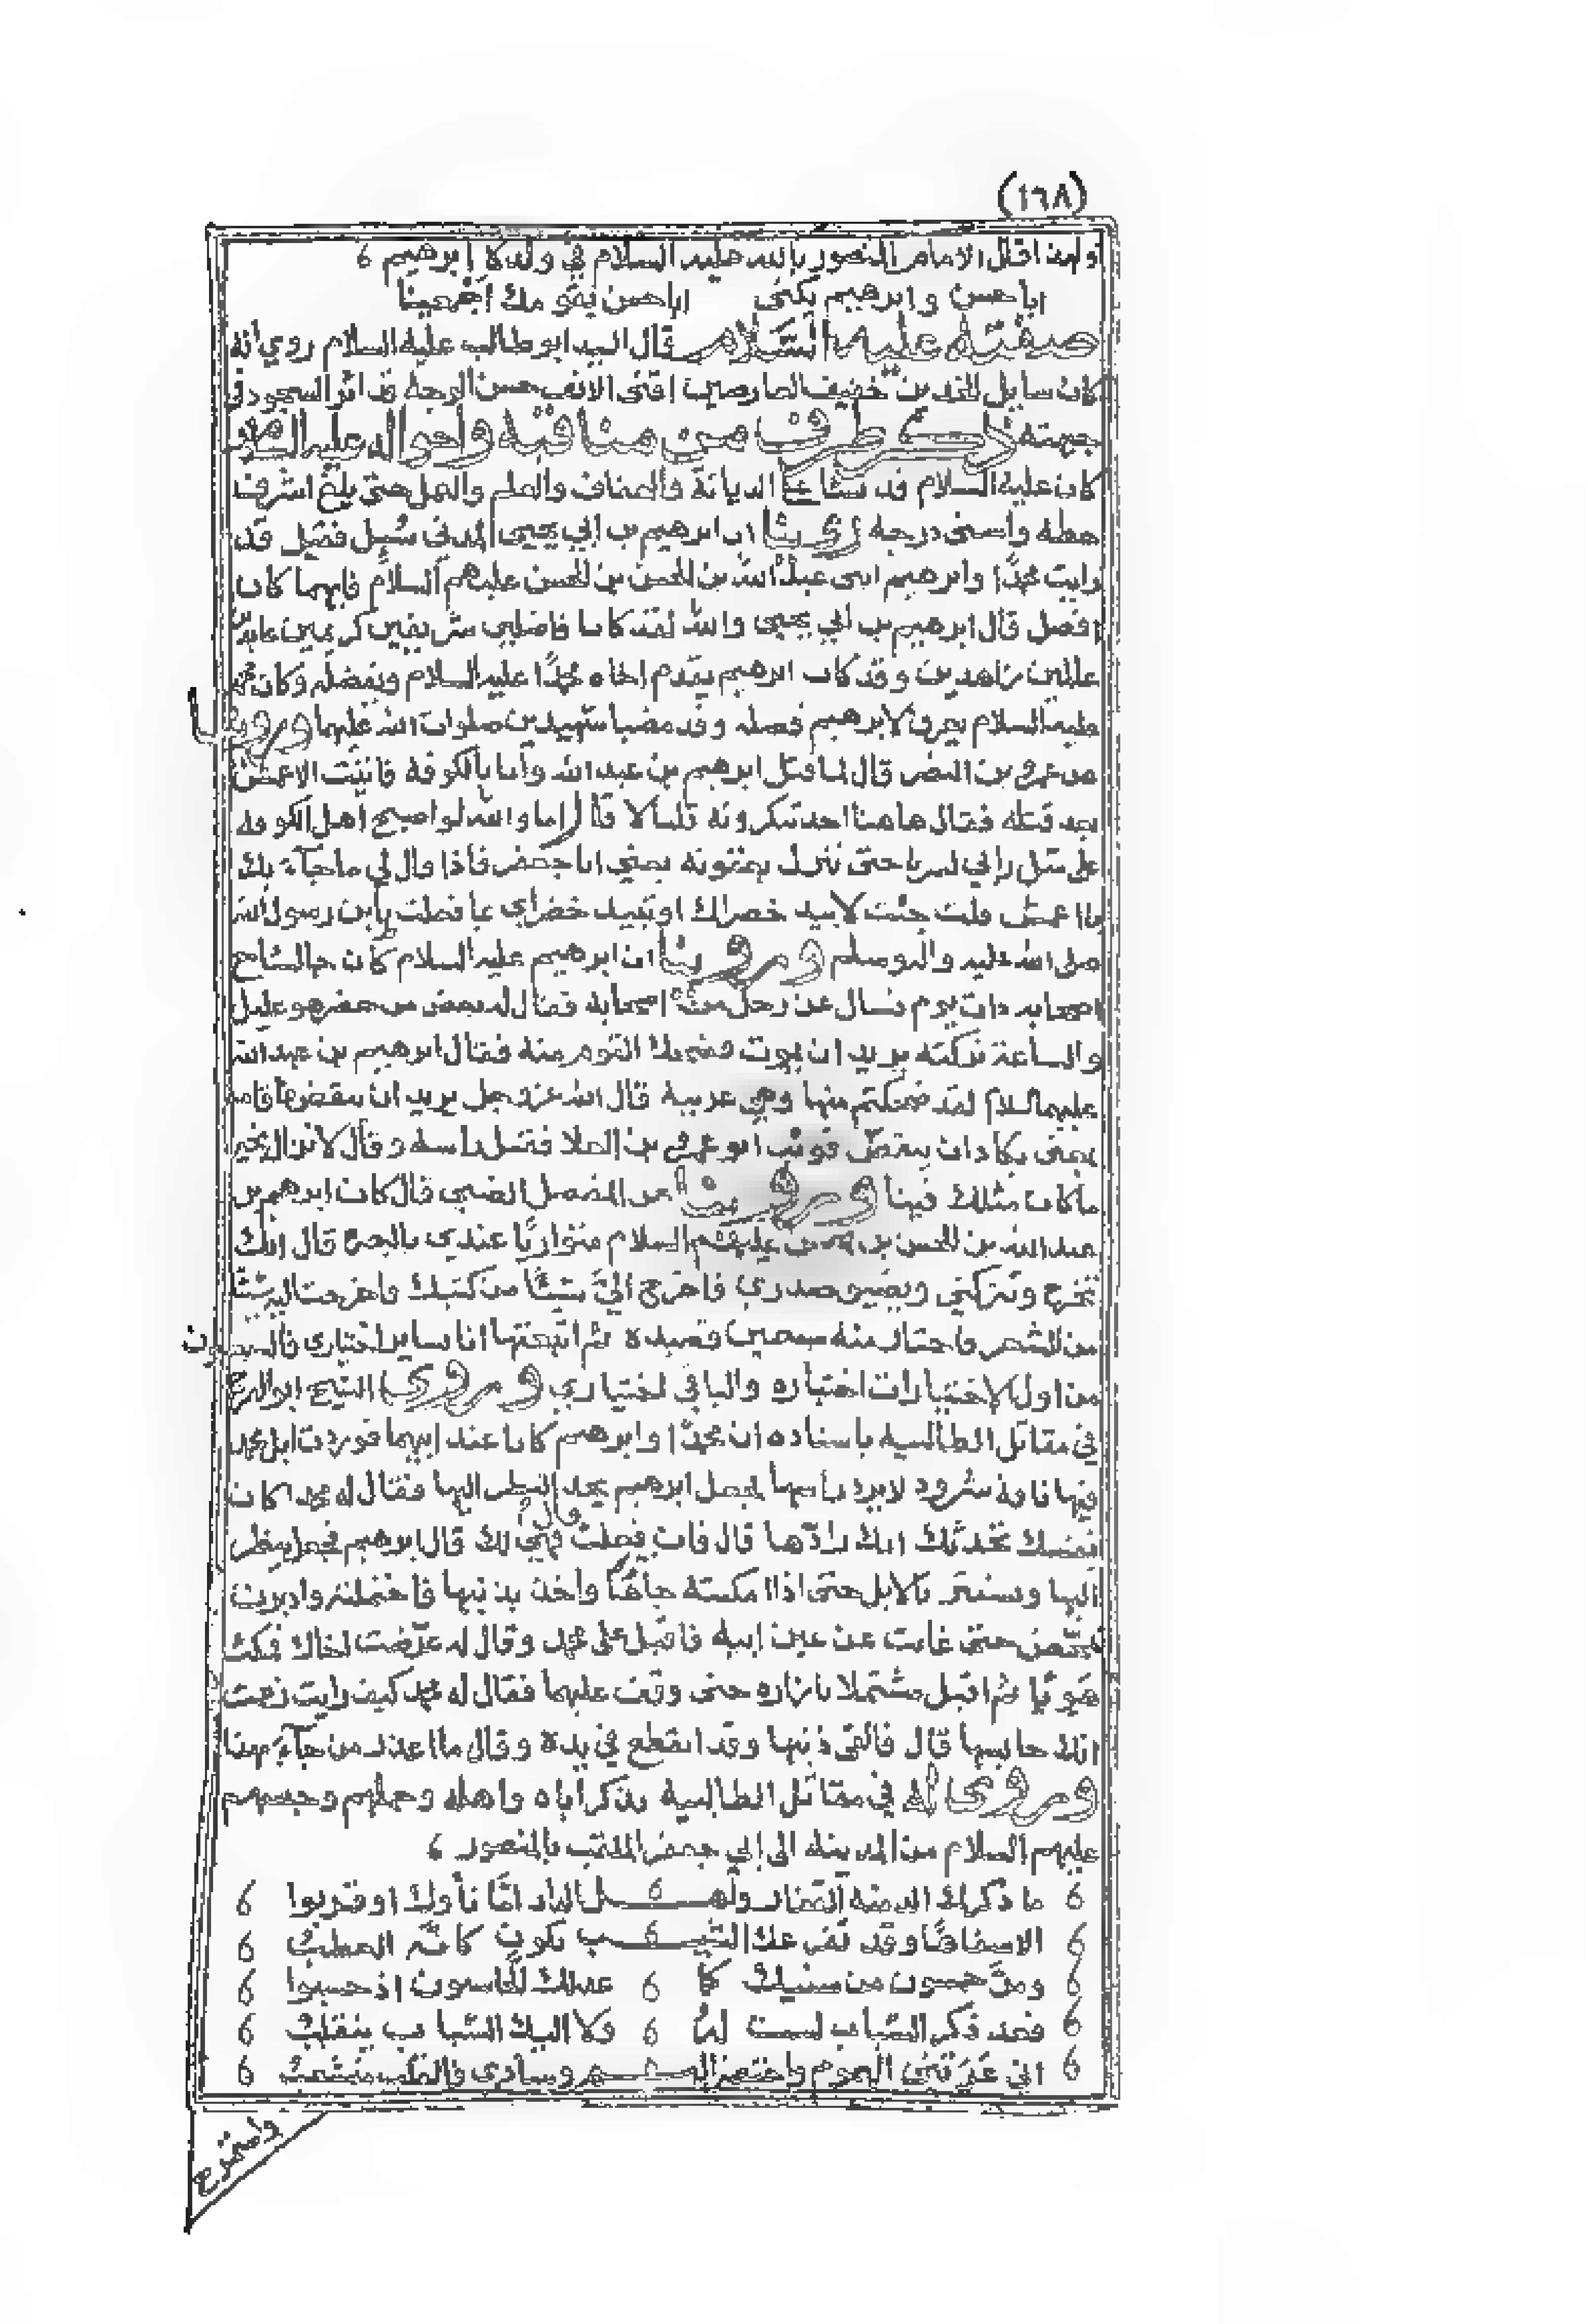 (١٦٨)
ولهذا قال الامام المنصور بالله عليه السلام في ولده ابرهيم
اباحسن وابرهيم يكنى اباحسن بقومك اجمعينا
صفته عليه السلام قال السيد ابوطالب عليه السلام روي انه
كان سايل الخدين خفيف العارضين اقنى الانف حسن الوجه قد اثر السجود في
جبهته ذكر طرف من مناقبه واحواله عليه السلام
كان عليه السلام قد نشا على الديانة والعفاف والعلم والعمل حتى بلغ اشرف
خطه واسنى درجه روينا ان ابرهيم بن ابي يحيى المدني سُيل فقيل قد
رايت محمدًا وابرهيم ابنى عبدالله بن الحسن بن الحسن عليهم السلام فايهما كان
افضل قال ابرهيم بن ابي يحيى والله لقد كانا فاضلين شريفين كريمين عابدين
عالمين زاهدين وقد كان ابرهيم يقدم اخاه محمدًا عليه السلام ويفضله وكان محمد
عليه السلام يعرف لابرهيم فضله وقد مضيا شهيدين صلوات الله عليهما وروينا
عن عمرو بن النضر قال لما قتل ابرهيم بن عبدالله وانا بالكوفة فاتيت الاعمش
بعد قتله فقال هاهنا احد تنكرونه قلنا لا قال اما والله لو اصبح اهل الكوفه
على مثل رايي لسرنا حتى ننزل بعقوته يعني اباجعفر فاذا قال لي ماجآء بك
يااعمش قلت جئت لابيد خضراك اوتبيد خضراي بما فعلت بابن رسول الله
صلى الله عليه واله وسلم وروينا ان ابرهيم عليه السلام كان جالسًا مع
اصحابه ذات يوم فسال عن رجل من اصحابه فقال له بعض من حضر هو عليل
والساعة تركته يريد ان يموت فضحك القوم منه فقال ابرهيم بن عبدالله
عليهما السلام لقد ضحكتم منها وهي عربية قال الله عز وجل يريد ان ينقض فاقامه
بمعنى يكاد ان ينقض فوثب ابو عمرو بن العلا فقبل راسه وقال لا نزال بخير
ماكان مثلك فينا وروينا عن المفضل الضبي قال كان ابرهيم بن
عبدالله بن الحسن بن الحسن عليهم السلام متواريًا عندي بالبصرة قال انك
تخرج وتتركني ويضيق صدري فاخرج اليّ شيئًا من كتبك فاخرجت اليه شيئًا
من الشعر فاختار منه سبعين قصيده ثم اتبعتها انا بساير اختياري والسبعون
من اول الاختيارات اختياره والباقي اختياري وروى الشيخ ابوالفرج
في مقاتل الطالبيه باسناده ان محمدًا وابرهيم كانا عند ابيهما فوردت ابل لمحمد
فيها ناقة شرود لايرد راسها فجعل ابرهيم يحد النظر اليها فقال له محمد كان
نفسك تحدثك انك رادّها قال فان فعلت قال فهي لك قال ابرهيم فجعل ينظر
اليها ويستتر بالابل حتى اذا امكنته جاءها واخذ بذنبها فاحتملته وادبرت
تمخض حتى غابت عن عين ابيه فاقبل على محمد وقال له عرّضت اخاك فمكث
هويًا ثم اقبل مشتملا بازاره حتى وقف عليهما فقال له محمد كيف رايت زعمت
انك حابسها قال فالقى ذنبها وقد انقطع في يده وقال ما اعذر من جآء بهذا
وروى له في مقاتل الطالبية يذكر اباه واهله وحملهم وحبسهم
عليهم السلام من المدينة الى ابي جعفر الملقب بالمنصور
ما ذكرك الدمنة القفار واهل الدار امّا نأوك اوقربوا
الا سفاهًا وقد تفرعك الشيب بكون كانّه العطب
ومرّ خمسون من سنيك كما عد لك الحاسبون اذ حسبوا
فعد ذكر الشباب لست له ولا اليك الشباب ينقلب
اني عرتني الهموم واحتضر الهم وسادي والقلب منشعب
واستخرج